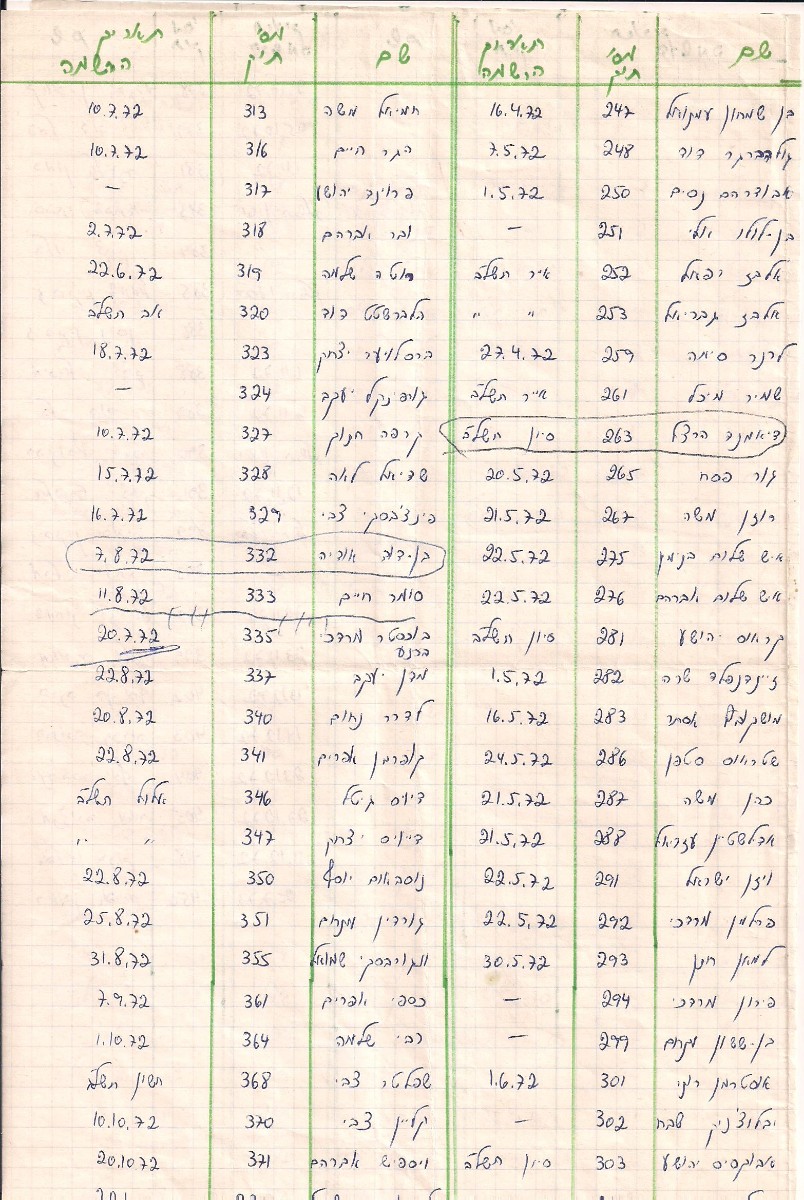 שם מס' תיק תאריך הרשמה שם מס' תיק תאריך הרשמה
בן שמחון עמנואל 247 16.4.72 חמיאל משה 313 10.7.72
גולדברגר דוד 248 7.5.72 הגר חיים 316 10.7.72
אבודרהם נסים 250 1.5.72 פרוינד יהושע 317 —
בן-לולו אלי 251 — ובר אברהם 318 2.7.72
אלבז רפאל 252 אייר תשל"ב שלמה 319 22.6.72
אלבז גבריאל 253 " " הלברשטט דוד 320 אב תשל"ב
לרנר סימה 259 27.4.72 ברסלויער יצחק 323 18.7.72
שמיר מיכל 261 אייר תשל"ב גורפינקל יעקב 324 —
דיאמנד הרצל 263 סיון תשל"ב קרפה חנוך 327 10.7.72
גור פסח 265 20.5.72 שדיאל לאה 328 15.7.72
רוזן משה 267 21.5.72 פינצ'בסקי צבי 329 16.7.72
איש שלום בנימין 275 22.5.72 בן-דוד אוריה 332 7.8.72
איש שלום אברהם 276 22.5.72 סומר חיים 333 11.8.72
קראוס יהושע 281 סיון תשל"ב בוכסטר מרדכי 335 20.7.72
ברנע
זיידנפלד שרה 282 1.5.72 מדן יעקב 337 22.8.72
מושקוביץ אסתר 283 16.5.72 לדרר נחום 340 20.8.72
שטראוס סטפן 286 24.5.72 קופרמן אפרים 341 22.8.72
כהן משה 287 21.5.72 דיויס גיטל 346 אלול תשל"ב
אדלשטיין עזריאל 288 21.5.72 דיויס יצחק 347 " "
ויזן ישראל 291 22.5.72 נוסבאום יוסף 350 22.8.72
פרלמן מרדכי 292 22.5.72 גורדין מנחם 351 25.8.72
למאן חנן 293 30.5.72 שמואל 355 31.8.72
פירון מרדכי 294 — כספי אפרים 361 7.9.72
בן-ששון מנחם 299 — רבי שלמה 364 1.10.72
אוסטרמן רוני 301 1.6.72 שכטר צבי 368 תשרין תשל"ג
יבלוצ'ניק שבח 302 — קליין צבי 370 10.10.72
יהושע 303 סיון תשל"ב ויספיש אברהם 371 20.10.72